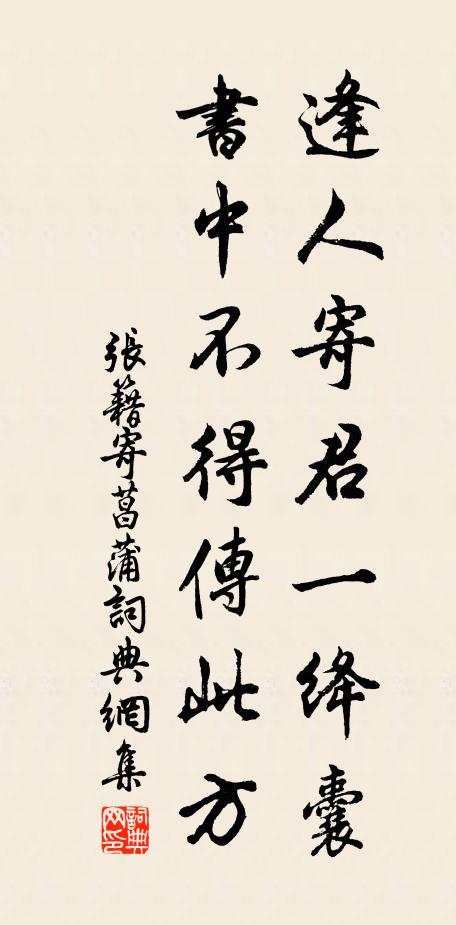 逢人寄君一绛囊
書中不得傳此方
張籍寄菖蒲詞典網集
詞典网印